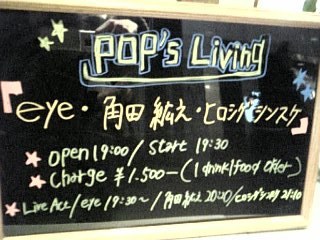 POP's Living
eye・角田紘え・ヒロシゲシンスケ
★ Open 19:00/ Start 19:30
★ Charge ¥1.500-(1drink1food Order)
★Live Act/eye 19:30~/角田紘え 20:20/ヒロシゲシンスケ 21:10